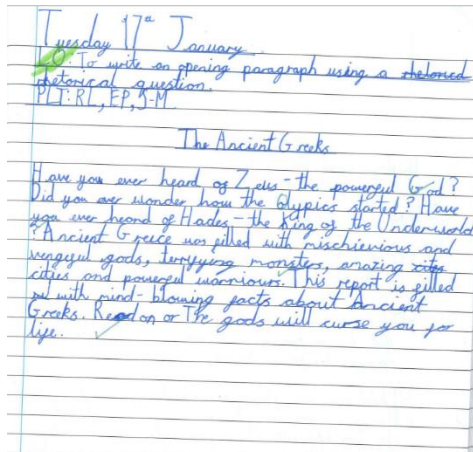 Tuesday 17th January.
L.O. To write an opening paragraph using a rhetorical
rhetorical question.
PLT: RL, EP, S-M
The Ancient Greeks
Have you ever heard of Zeus - the powerful God?
Did you ever wonder how the Olypics started? Have
you ever heard of Hades - the King of the Underworld
? Ancient Greice was filled with mischievious and
vengeful gods, terrifying monsters, amazing cites
cities and powerful warriours. This report is filled
with mind-blowing facts about Ancient
Greeks. Read on or The gods will curse you for
life.